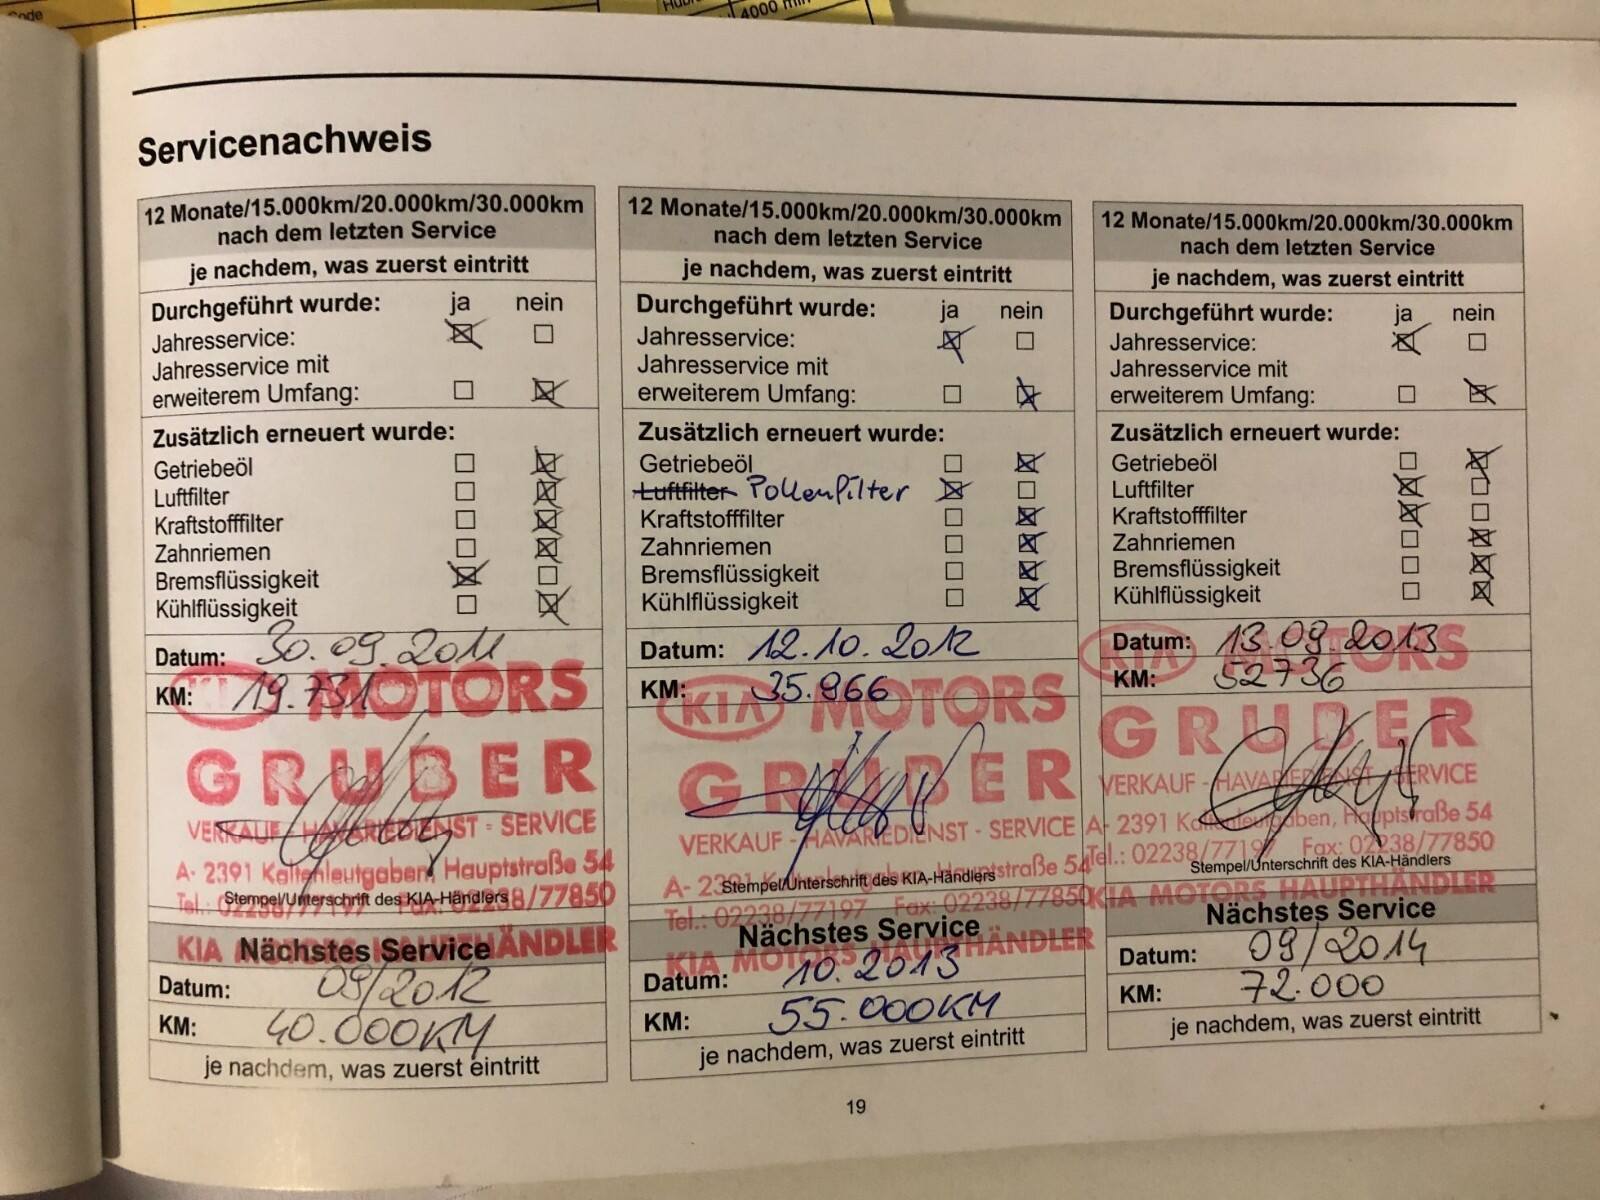 ode
Hubr
4000 min
Servicenachweis
12 Monate/15.000km/20.000km/30.000km
nach dem letzten Service
je nachdem, was zuerst eintritt
Durchgeführt wurde: ja nein
Jahresservice:
Jahresservice mit
erweiterem Umfang:
Zusätzlich erneuert wurde:
Getriebeöl
Luftfilter
Kraftstofffilter
Zahnriemen
Bremsflüssigkeit
Kühlflüssigkeit
Datum: 30.09.2011
KM: 19.731
KIA MOTORS
GRUBER
VERKAUF - HAVARIEDIENST - SERVICE
A- 2391 Kaltenleutgaben, Hauptstraße 54
Stempel/Unterschrift des KIA-Händlers
Tel.: 02238/77197 Fax: 02238/77850
KIA MOTORS HAUPTHÄNDLER
Nächstes Service
Datum: 09/2012
KM: 40.000KM
je nachdem, was zuerst eintritt
12 Monate/15.000km/20.000km/30.000km
nach dem letzten Service
je nachdem, was zuerst eintritt
Durchgeführt wurde: ja nein
Jahresservice:
Jahresservice mit
erweiterem Umfang:
Zusätzlich erneuert wurde:
Getriebeöl
Luftfilter Pollenfilter
Kraftstofffilter
Zahnriemen
Bremsflüssigkeit
Kühlflüssigkeit
Datum: 12.10.2012
KM: 35.966
KIA MOTORS
GRUBER
VERKAUF - HAVARIEDIENST - SERVICE
A- 2391 Kaltenleutgaben, Hauptstraße 54
Stempel/Unterschrift des KIA-Händlers
Tel.: 02238/77197 Fax: 02238/77850
KIA MOTORS HAUPTHÄNDLER
Nächstes Service
Datum: 10.2013
KM: 55.000KM
je nachdem, was zuerst eintritt
12 Monate/15.000km/20.000km/30.000km
nach dem letzten Service
je nachdem, was zuerst eintritt
Durchgeführt wurde: ja nein
Jahresservice:
Jahresservice mit
erweiterem Umfang:
Zusätzlich erneuert wurde:
Getriebeöl
Luftfilter
Kraftstofffilter
Zahnriemen
Bremsflüssigkeit
Kühlflüssigkeit
Datum: 13.09.2013
KM: 52736
KIA MOTORS
GRUBER
VERKAUF - HAVARIEDIENST - SERVICE
A- 2391 Kaltenleutgaben, Hauptstraße 54
Tel.: 02238/77197 Fax: 02238/77850
Stempel/Unterschrift des KIA-Händlers
KIA MOTORS HAUPTHÄNDLER
Nächstes Service
Datum: 09/2014
KM: 72.000
je nachdem, was zuerst eintritt
19